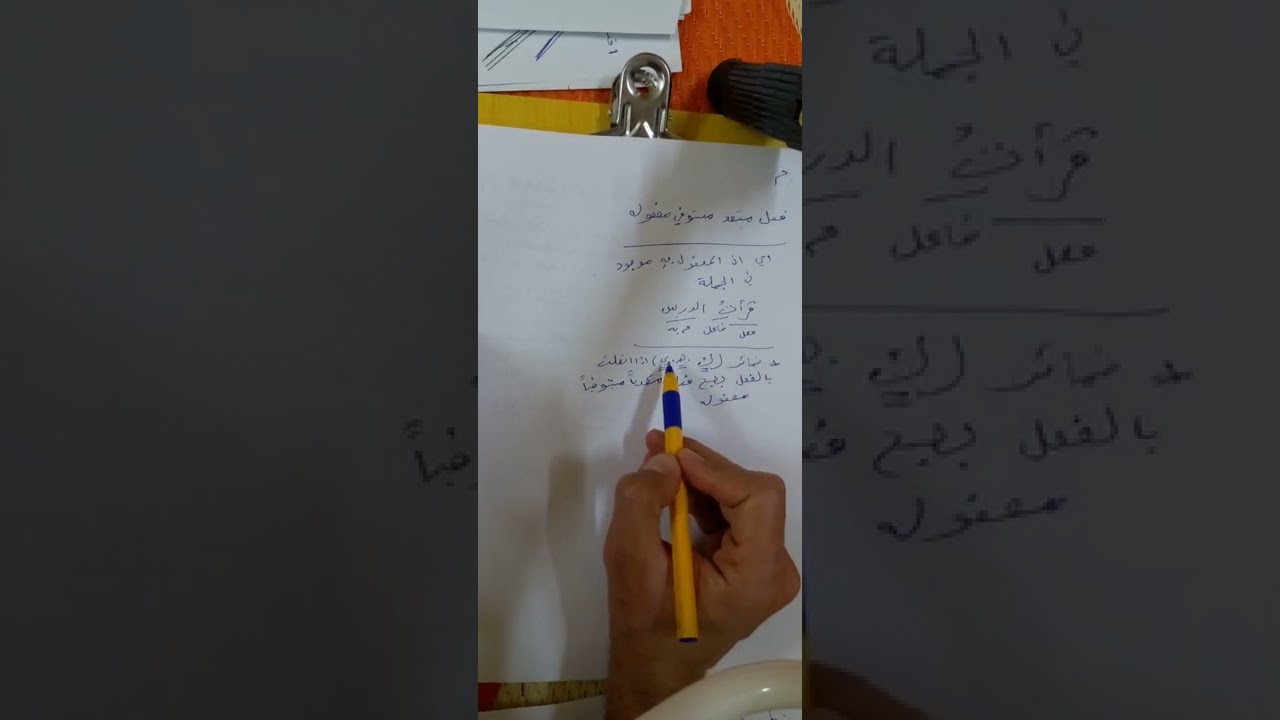 م
فعل متعد مستوفي مفعوله
اي ان المفعول به موجود
في الجملة
قرأتُ الدرس
فعل فاعل م به
* ضمائر (ك، هـ، ي) اذا اتصلت
بالفعل يصبح متعدياً مستوفياً
مفعوله